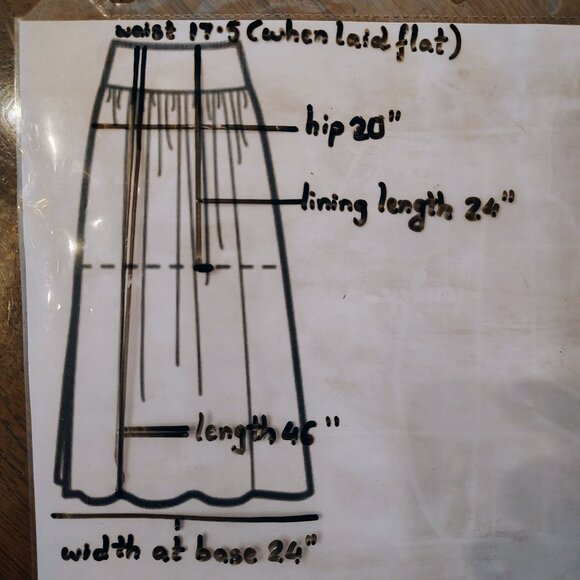 waist 17.5 (when laid flat)
hip 20"
lining length 24"
length 46"
width at base 24"